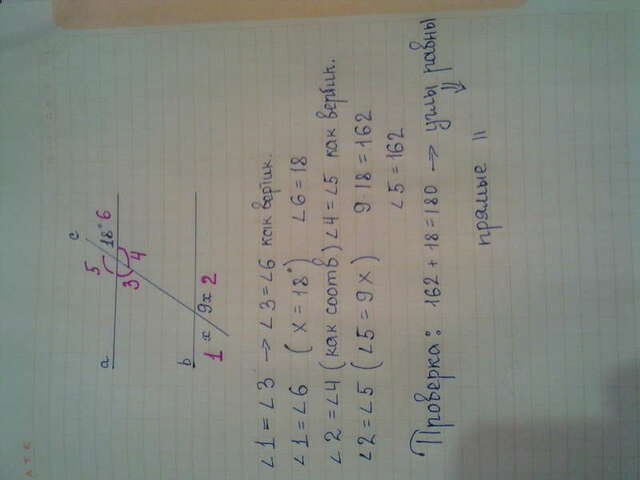 a
c
5
18° 6
3 4
b
1 x 9x 2
∠1 = ∠3 → ∠3 = ∠6 как вертик.
∠1 = ∠6 (x = 18°) ∠6 = 18
∠2 = ∠4 (как соотв.) ∠4 = ∠5 как вертик.
∠2 = ∠5 (∠5 = 9x) 9 18 = 162
∠5 = 162
Проверка: 162 + 18 = 180 → углы равны
⇓
прямые ||